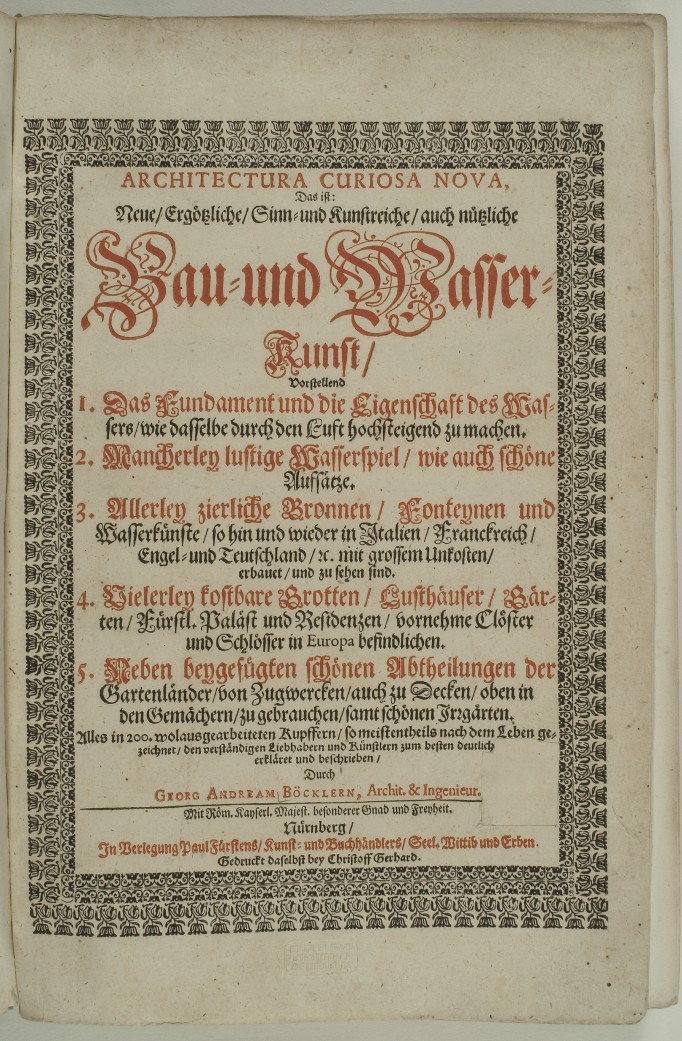 ARCHITECTURA CURIOSA NOVA,
Das ist:
Neue/ Ergötzliche/ Sinn- und Kunstreiche/ auch nützliche
Bau- und Wasser-
Kunst/
Vorstellend
1. Das Fundament und die Eigenschaft des Was-
sers/ wie dasselbe durch den Luft hochsteigend zu machen.
2. Mancherley lustige Wasserspiel/ wie auch schöne
Aufsätze.
3. Allerley zierliche Bronnen/ Fonteynen und
Wasserkünste/ so hin und wieder in Italien/ Franckreich/
Engel- und Teutschland/ ꝛc. mit grossem Unkosten/
erbauet/ und zu sehen sind.
4. Vielerley kostbare Grotten/ Lusthäuser/ Gär-
ten/ Fürstl. Paläst und Residenzen/ vornehme Clöster
und Schlösser in Europa befindlichen.
5. Neben beygefügten schönen Abtheilungen der
Gartenländer/ von Zugwercken/ auch zu Decken/ oben in
den Gemächern/ zu gebrauchen/ samt schönen Irrgärten.
Alles in 200. wolausgearbeiteten Kupffern/ so meistentheils nach dem Leben ge-
zeichnet/ den verständigen Liebhabern und Künstlern zum besten deutlich
erkläret und beschrieben/
Durch
GEORG ANDREAM BÖCKLERN, Archit. & Ingenieur.
Mit Röm. Kayserl. Majest. besonderer Gnad und Freyheit.
Nürnberg/
In Verlegung Paul Fürstens/ Kunst- und Buchhändlers/ Seel. Wittib und Erben.
Gedruckt daselbst bey Christoff Gerhard.